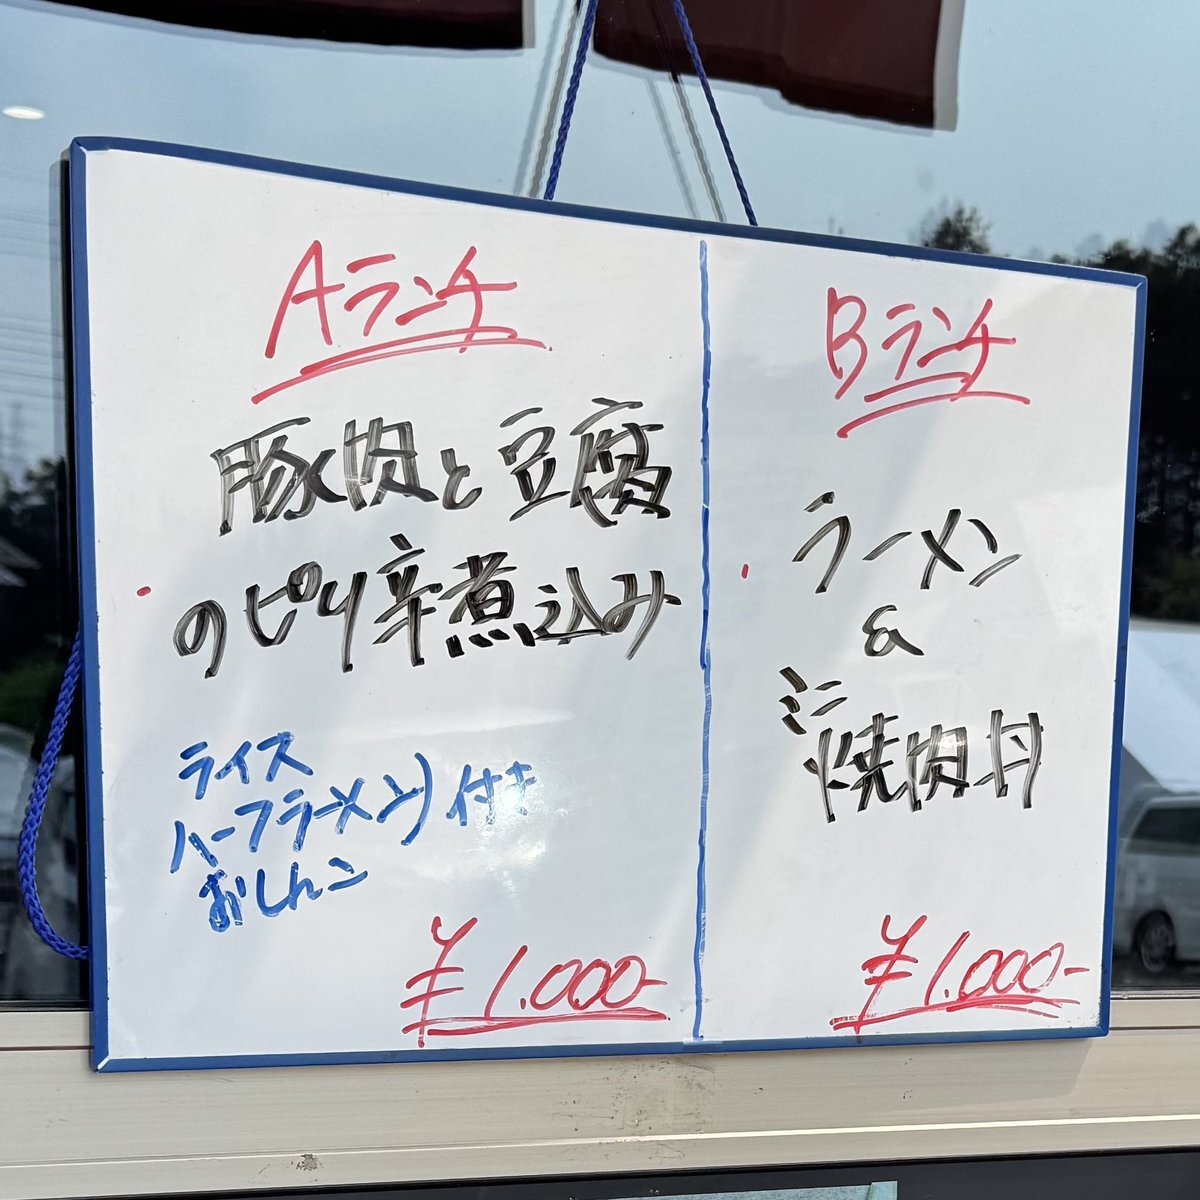 Aランチ
豚肉と豆腐
のピリ辛煮込み
ライス
ハーフラーメン) 付き
おしんこ
¥1.000-
Bランチ
ラーメン
&
ミニ
焼肉丼
¥1.000-